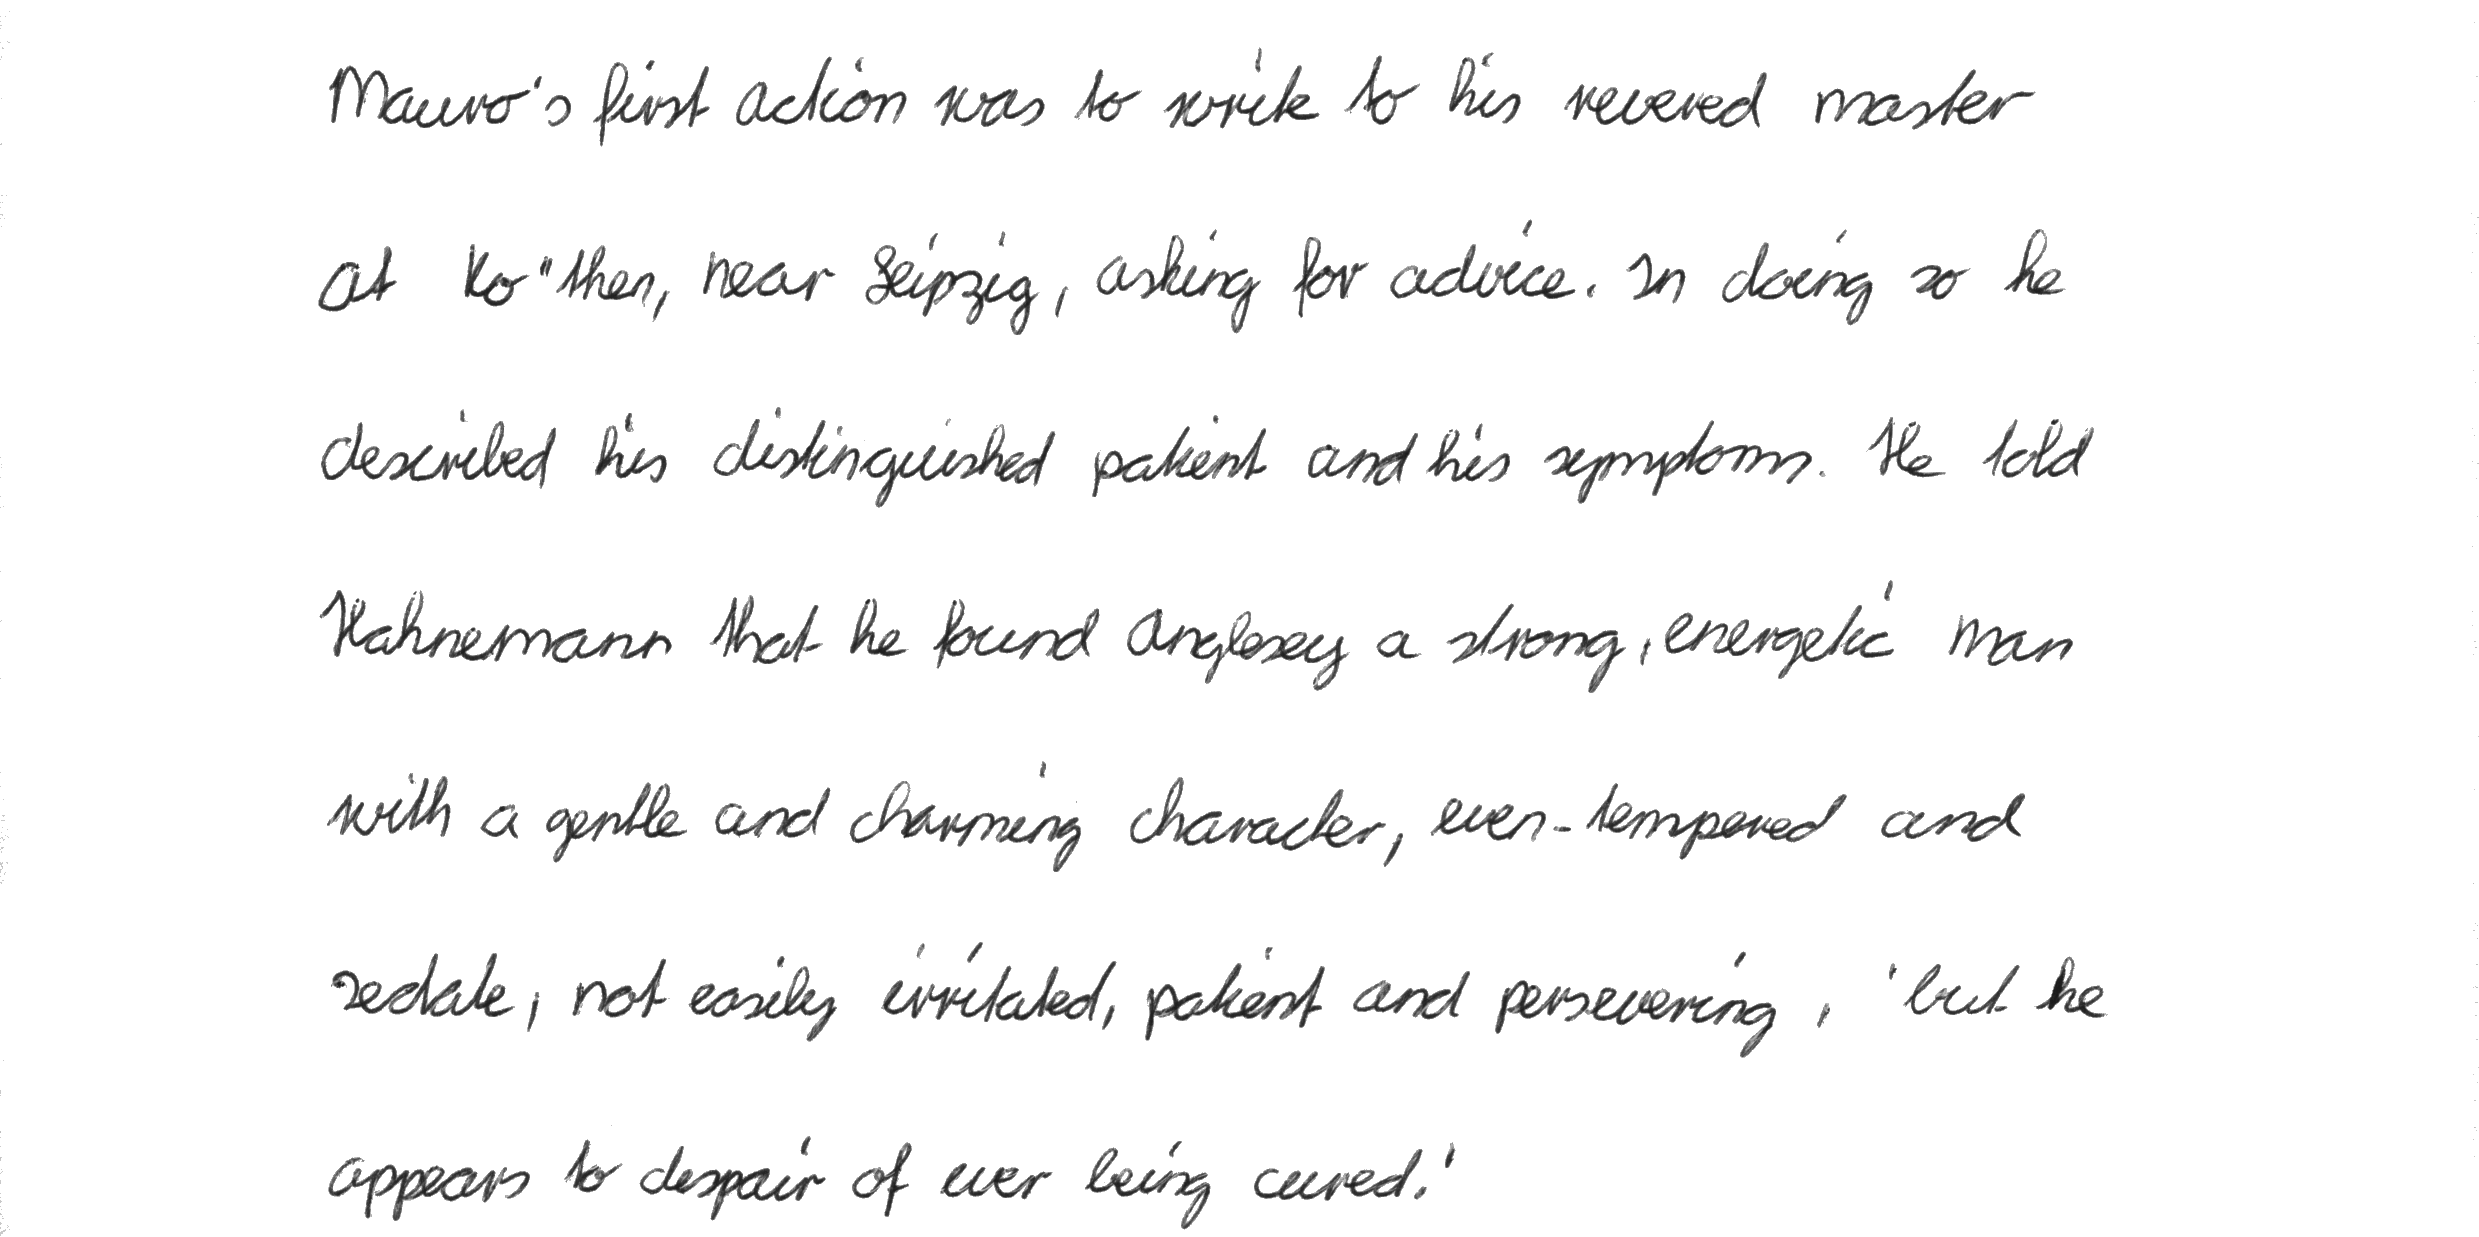 Mauro's first action was to write to his revered master
at Ko"then, near Leipzig, asking for advice. In doing so he
described his distinguished patient and his symptoms. He told
Hahnemann that he found Anglesey a strong, energetic man
with a gentle and charming character, even-tempered and
sedate, not easily irritated, patient and persevering, 'but he
appears to despair of ever being cured.'